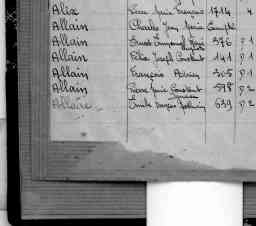 Alix Marie François 1714 4
Allain Charles Jean Marie
Allain Ernest Emmanuel 376 P 1
Allain Félix Joseph Constant 141 P 1
Allain François Adrien 305 P 1
Allain Pierre Marie Constant 578 P 2
Allaire Emile 639 P 2